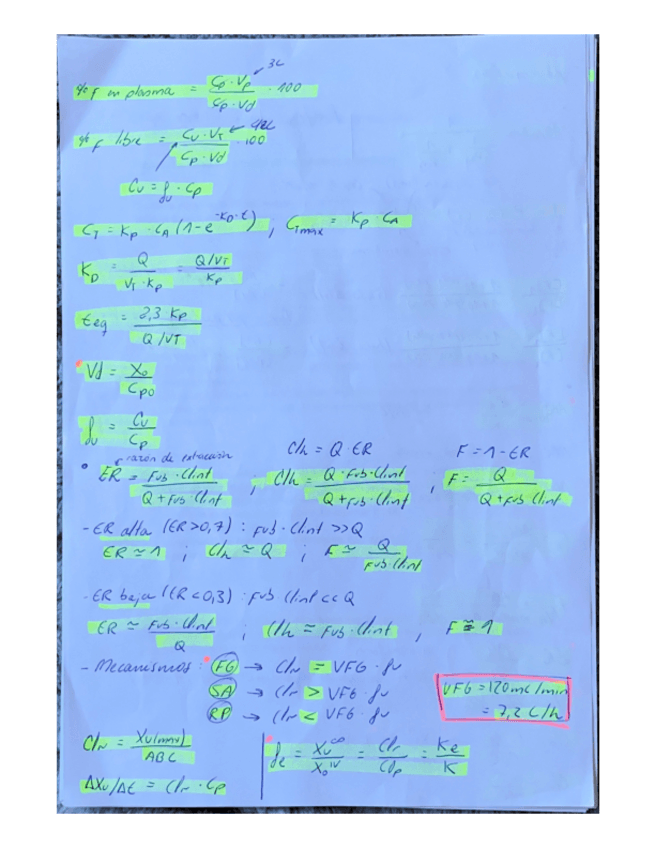 3L
% F en plasma = Cp · Vp / Cp · Vd · 100
42L
% F libre = Cu · VT / Cp · Vd · 100
Cu = fu · Cp
CT = Kp · CA (1 - e^-KD·t) , CTmax = Kp · CA
KD = Q / VT · Kp = Q/VT / Kp
teq = 2,3 Kp / Q/VT
Vd = X0 / Cp0
fu = Cu / Cp
razón de extracción Clh = Q · ER F = 1 - ER
• ER = Fub · Clint / Q + Fub · Clint ; Clh = Q · Fub · Clint / Q + Fub · Clint ; F = Q / Q + Fub · Clint
- ER alta (ER > 0,7) : Fub · Clint >> Q
ER ≃ 1 ; Clh ≃ Q ; F ≃ Q / Fub · Clint
- ER baja (ER < 0,3) : Fub Clint << Q
ER ≃ Fub · Clint / Q ; Clh ≃ Fub · Clint , F ≅ 1
- Mecanismos : FG → Clr = VFG · fu
SA → Clr > VFG · fu
RP → Clr < VFG · fu
VFG = 120 mL/min
= 7,2 L/h
Clr = Xu(max) / ABC
fe = Xu^∞ / X0^IV = Clr / Clp = Ke / K
ΔXu/Δt = Clr · Cp